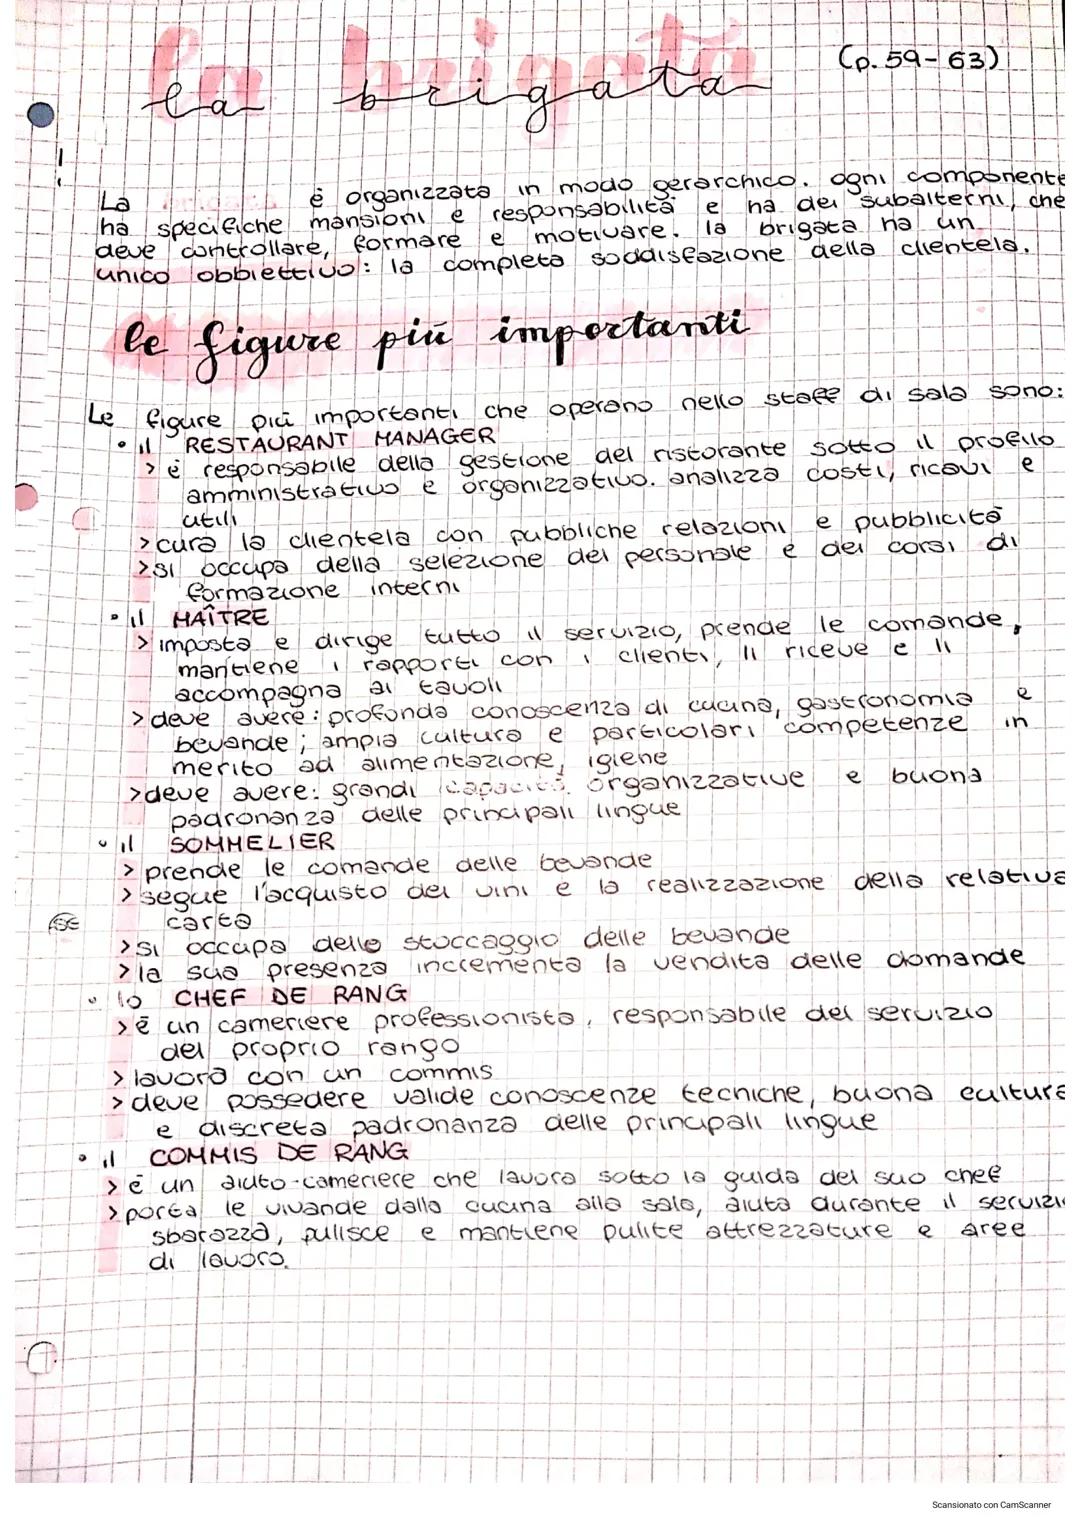 la brigata
(p. 59-63)
La brigata è organizzata in modo gerarchico. ogni componente
ha specifiche mansioni e responsabilità e ha dei subalterni, che
deve controllare, formare e motivare. la brigata ha un
unico obbiettivo: la completa soddisfazione della clientela.
le figure più importanti
Le figure più importanti che operano nello staff di sala sono:
• il RESTAURANT MANAGER
> è responsabile della gestione del ristorante sotto il profilo
amministrativo e organizzativo. analizza costi, ricavi e
utili
> cura la clientela con pubbliche relazioni e pubblicità
> si occupa della selezione del personale e dei corsi di
formazione interni
• il MAÎTRE
> imposta e dirige tutto il servizio, prende le comande,
mantiene i rapporti con i clienti, li riceve e li
accompagna ai tavoli
> deve avere: profonda conoscenza di cucina, gastronomia e
bevande; ampia cultura e particolari competenze in
merito ad alimentazione, igiene
> deve avere: grandi capacità organizzative e buona
padronanza delle principali lingue
• il SOMMELIER
> prende le comande delle bevande
> segue l'acquisto dei vini e la realizzazione della relativa
carta
> si occupa dello stoccaggio delle bevande
> la sua presenza incrementa la vendita delle domande
• lo CHEF DE RANG
> è un cameriere professionista, responsabile del servizio
del proprio rango
> lavora con un commis
> deve possedere valide conoscenze tecniche, buona cultura
e discreta padronanza delle principali lingue
• il COMMIS DE RANG
> è un aiuto-cameriere che lavora sotto la guida del suo chef
> porta le vivande dalla cucina alla sala, aiuta durante il servizi
sbarazza, pulisce e mantiene pulite attrezzature e aree
di lavoro.
Scansionato con CamScanner